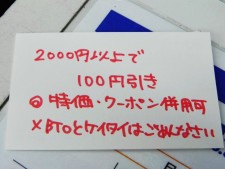 2000円以上で
100円引き
◎特価・クーポン併用可
×BTOとケイタイはごめんなさい